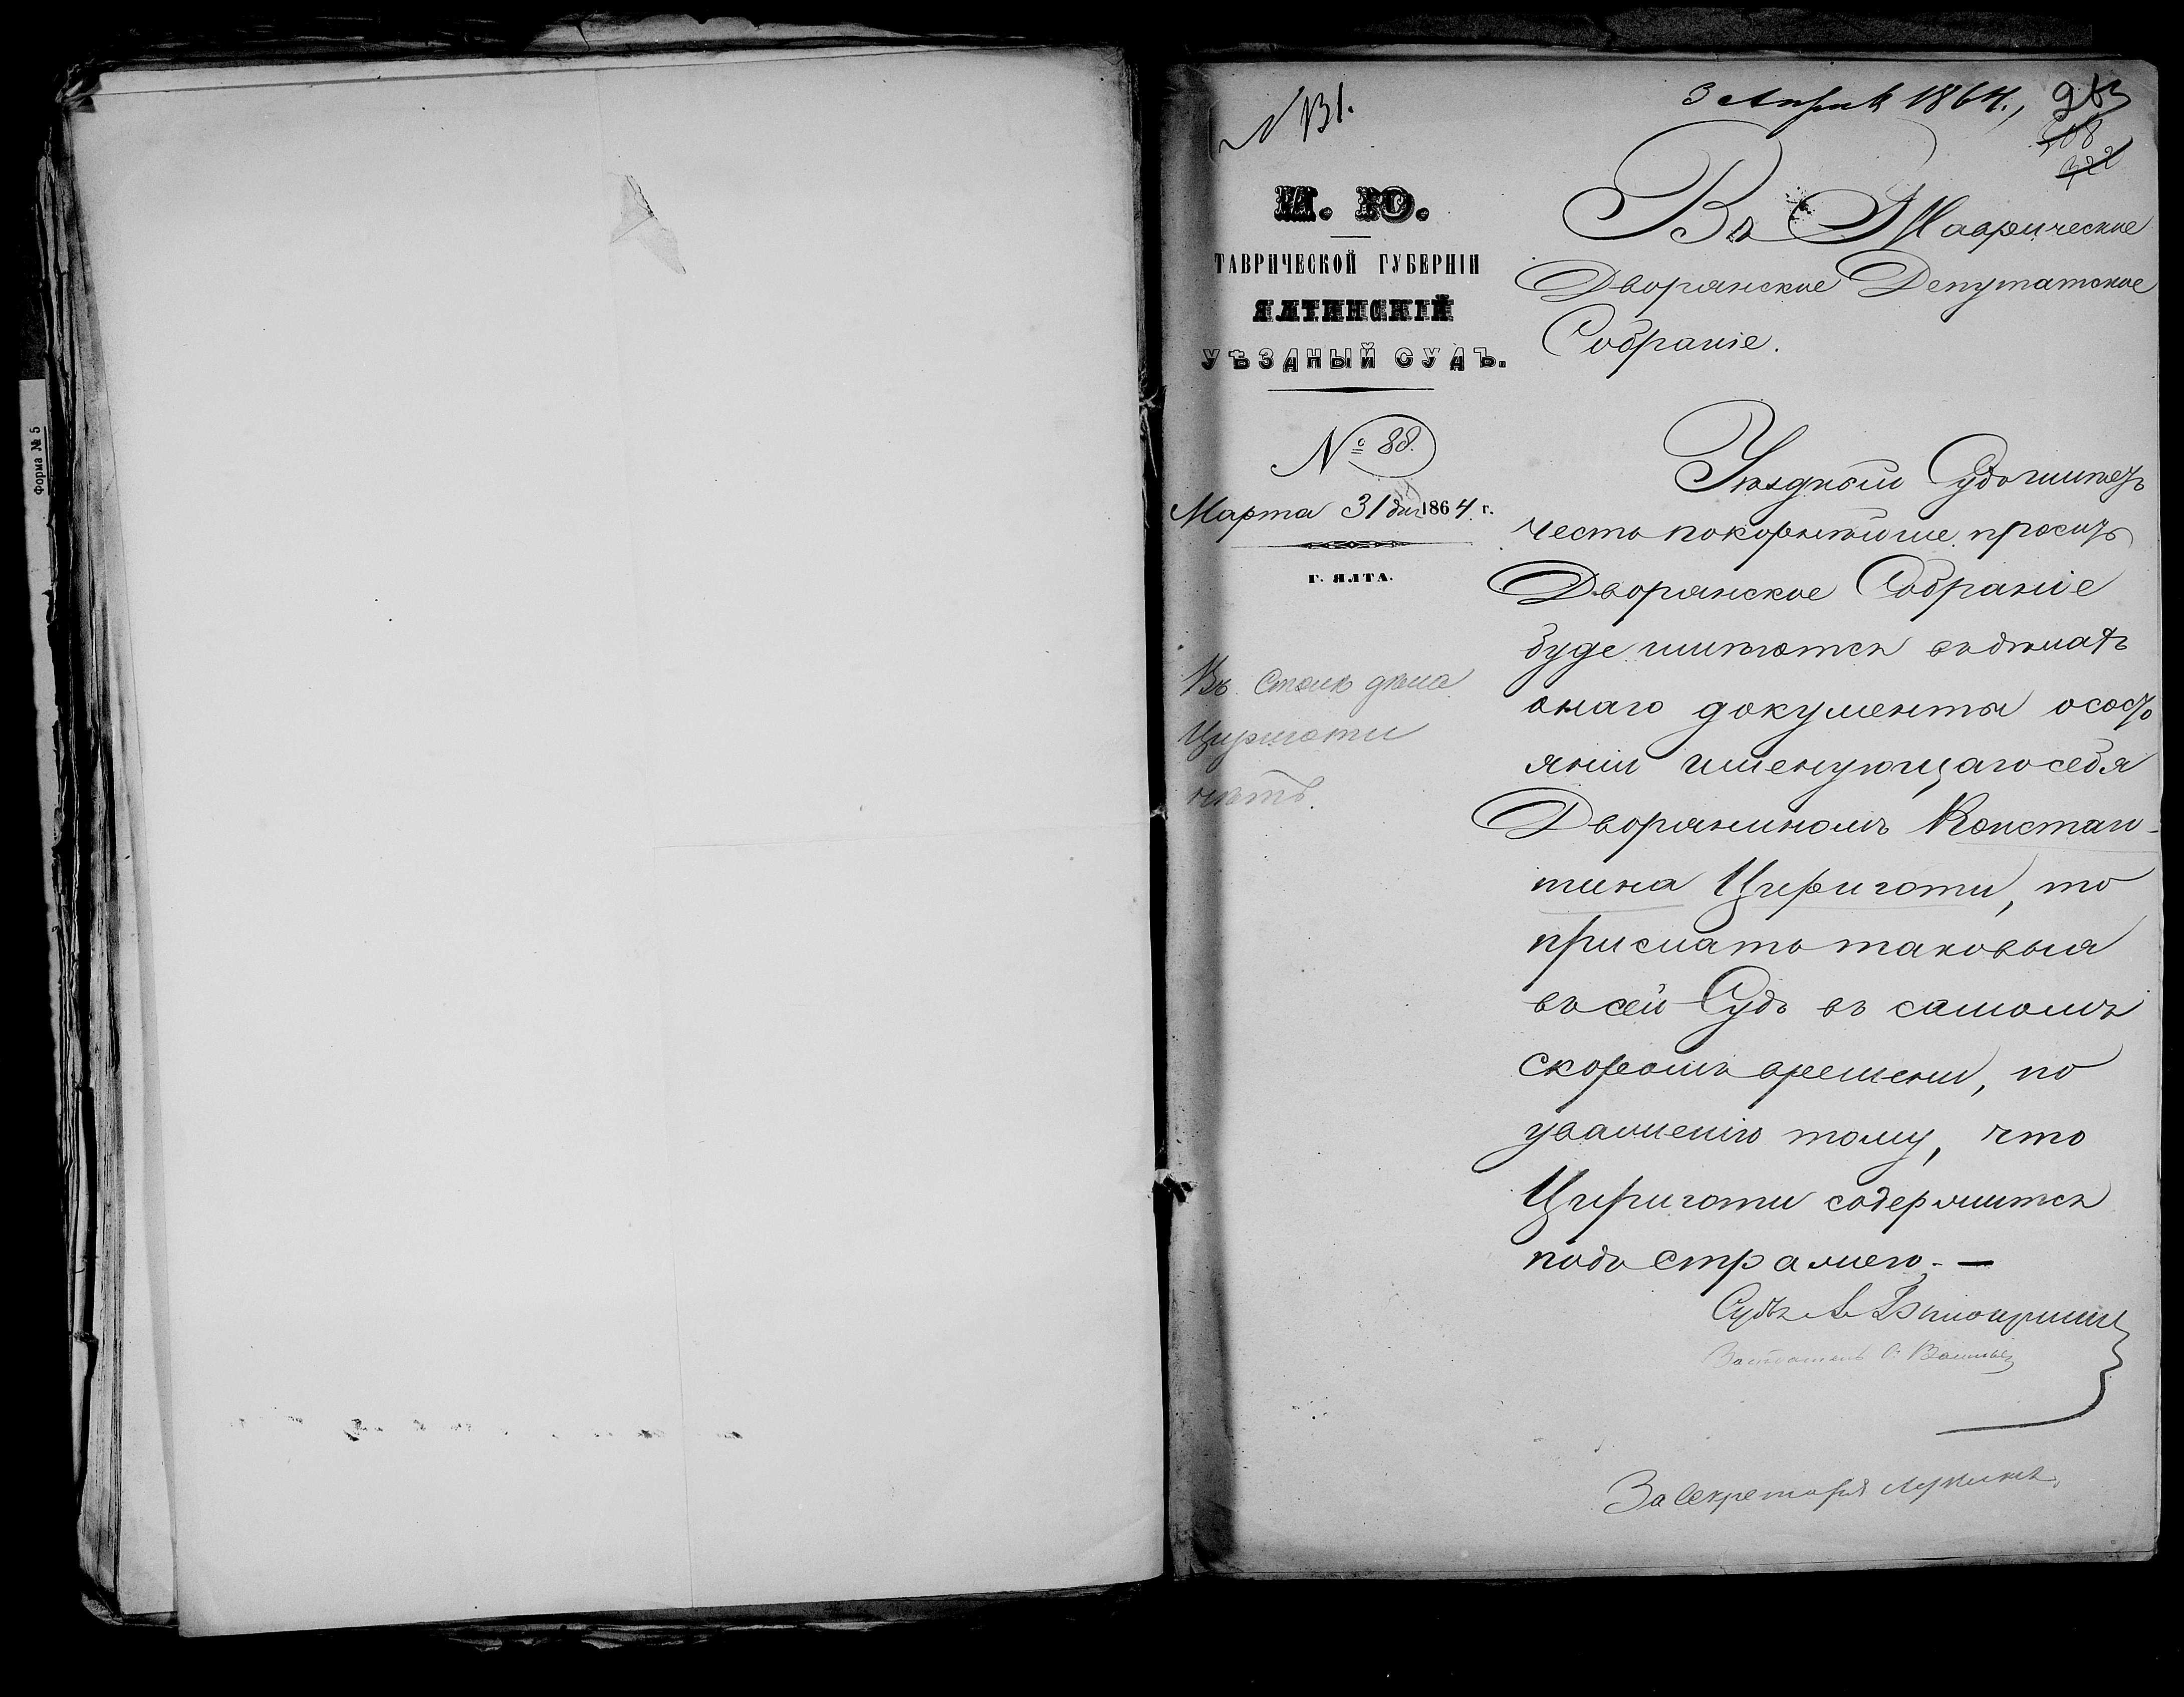 Форма № 5
N 131.
3 Апреля 1864.,
263
308
322
М. Ю.
ТАВРИЧЕСКОЙ ГУБЕРНІИ
ЯЛТИНСКІЙ
УѢЗДНЫЙ СУДЪ.
№ 88.
Марта 31 дня 1864. г.
Г. ЯЛТА.
Въ столѣ дѣла
Цириготи
нѣтъ.
Въ Таврическое
Дворянское Депутатское
Собраніе.
Уѣздный Судъ имѣетъ
честь покорнѣйше проситъ
Дворянское Собраніе
буде имѣются въ дѣлахъ
онаго документы о сост
яніи именующаго себя
Дворяниномъ Констан-
тина Цириготи, то
прислать таковыя
въ сей Судъ въ самомъ
скоромъ времени, по
уваженію тому, что
Цириготи содержится
подъ стражею. —
Судья А.
Засѣдатель
За Секретаря